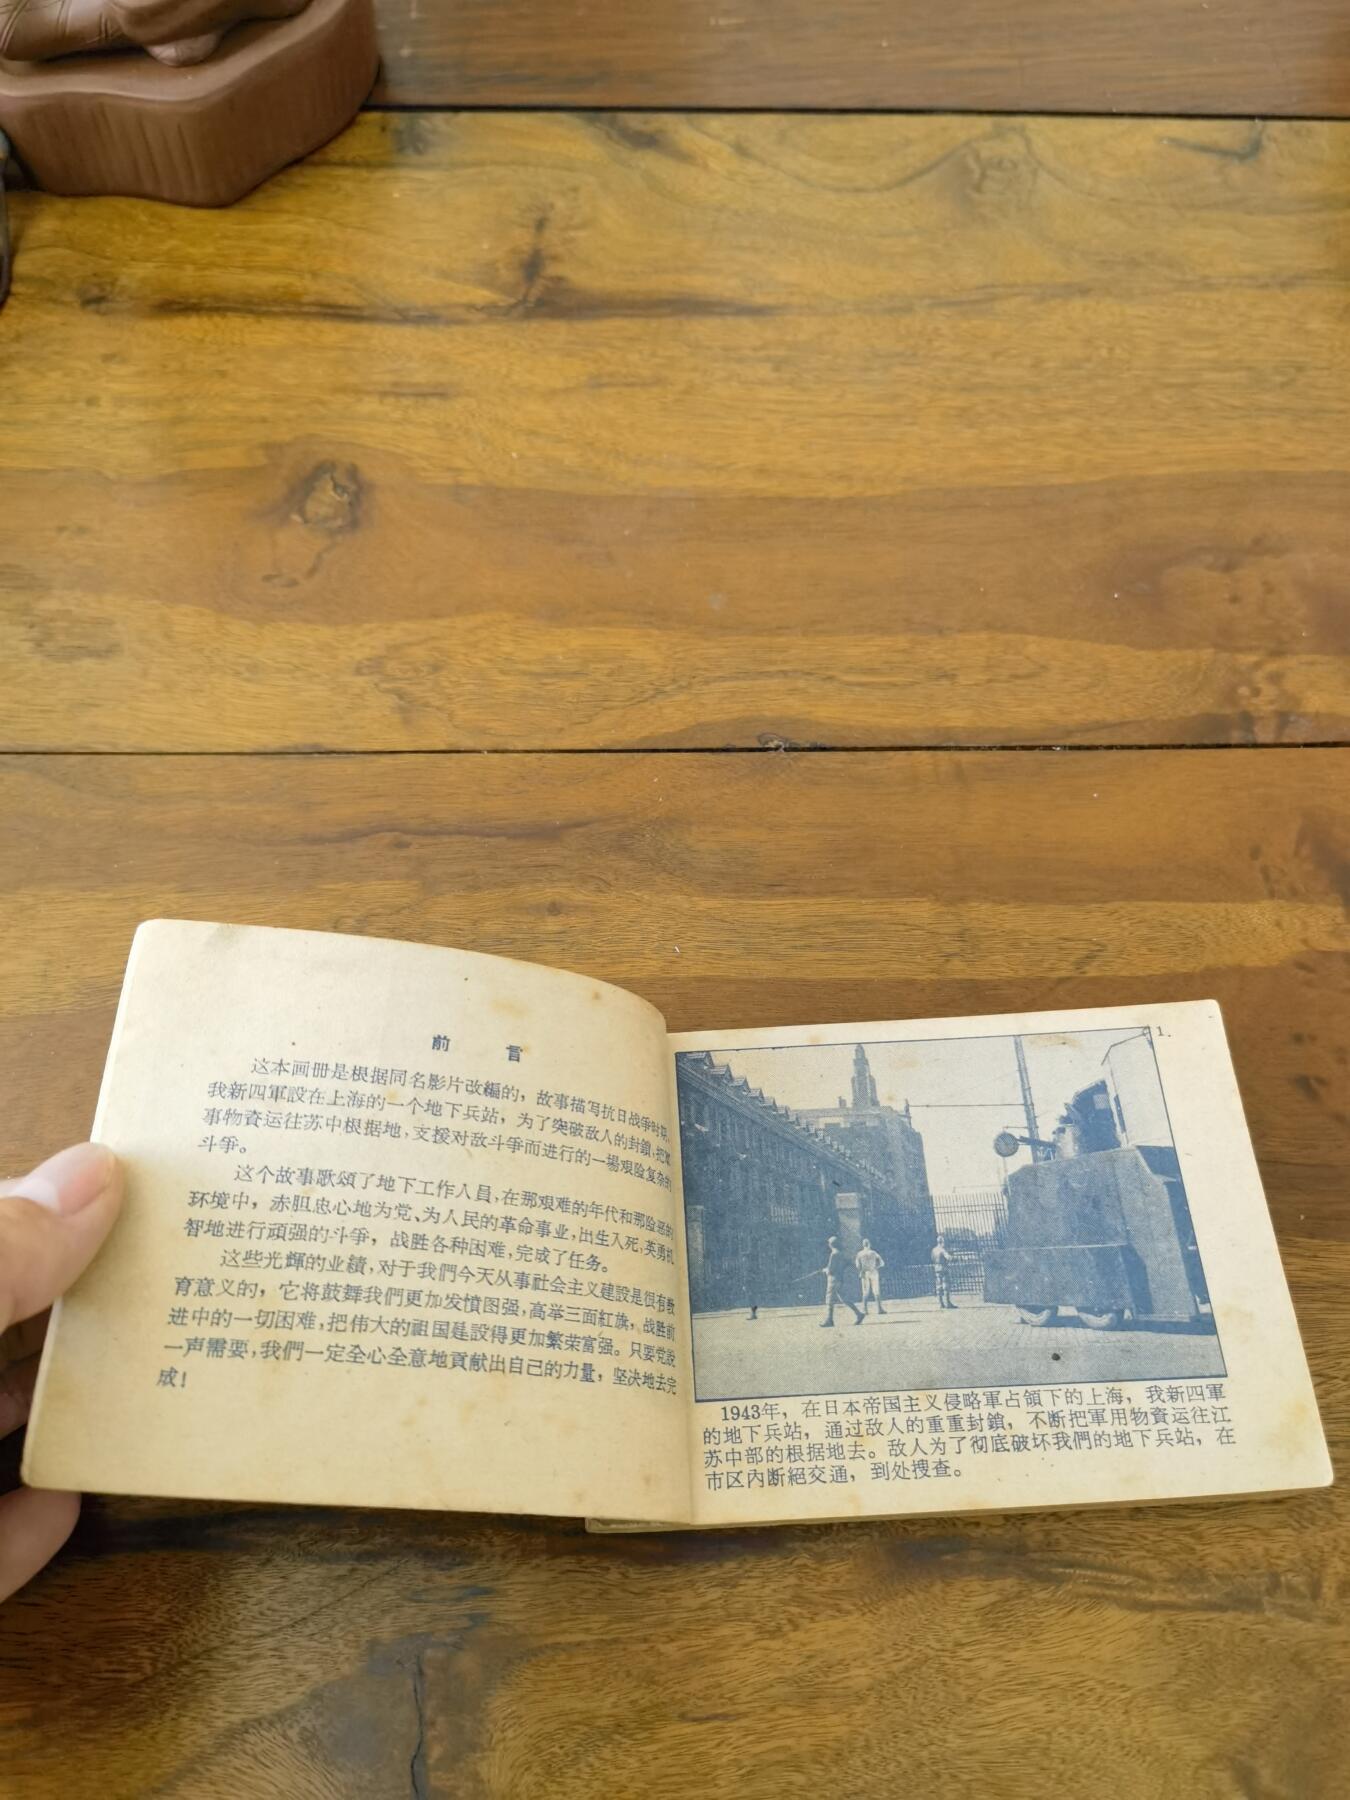 前 言
这本画册是根据同名影片改編的，故事描写抗日战争时期，
我新四軍設在上海的一个地下兵站，为了突破敌人的封鎖，把軍
事物資运往苏中根据地，支援对敌斗爭而进行的一場艰险复杂的
斗爭。
这个故事歌頌了地下工作人員，在那艰难的年代和那险恶的
环境中，赤胆忠心地为党、为人民的革命事业，出生入死，英勇机
智地进行頑强的斗爭，战胜各种困难，完成了任务。
这些光輝的业績，对于我們今天从事社会主义建設是很有教
育意义的，它将鼓舞我們更加发憤图强，高举三面紅旗，战胜前
进中的一切困难，把伟大的祖国建設得更加繁荣富强。只要党說
一声需要，我們一定全心全意地貢献出自己的力量，坚决地去完
成！
1.
1943年，在日本帝国主义侵略軍占領下的上海，我新四軍
的地下兵站，通过敌人的重重封鎖，不断把軍用物資运往江
苏中部的根据地去。敌人为了彻底破坏我們的地下兵站，在
市区內断絕交通，到处搜查。